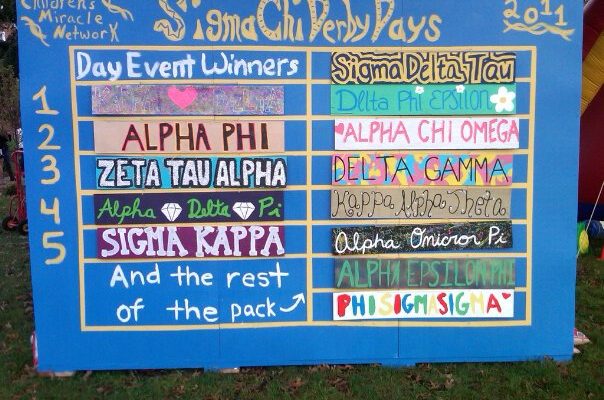 Children's
Miracle
Network
Sigma Chi Derby Days
2011
Day Event Winners
1
2 ALPHA PHI
3 ZETA TAU ALPHA
4 Alpha Delta Pi
5 SIGMA KAPPA
And the rest
of the pack
Sigma Delta Tau
Delta Phi EpsiloN
ALPHA CHI OMEGA
DELTA GAMMA
Kappa Alpha Theta
Alpha Omicron Pi
ALPHA EPSILON PHI
PHI SIGMA SIGMA